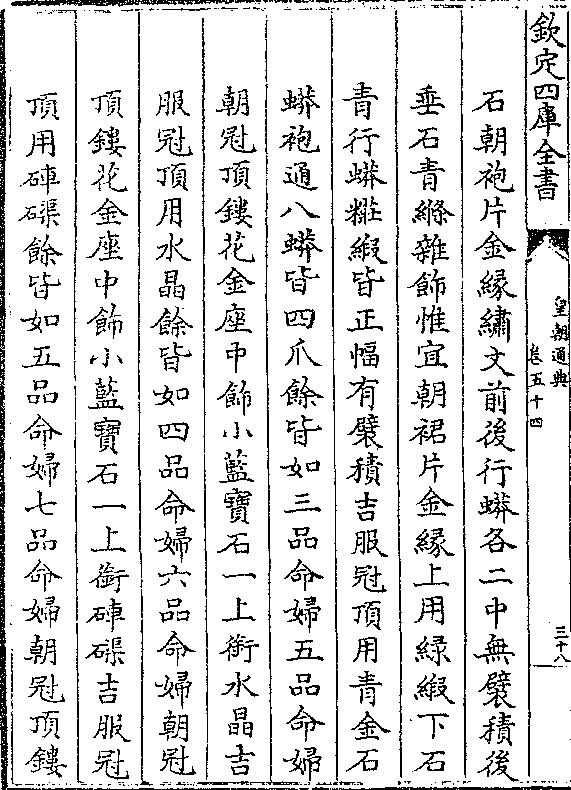 欽定四庫全書
皇朝通典
卷五十四
三十八
石朝袍片金緣繡文前後行蟒各二中無襞積後
垂石青絛雜飾惟宜朝裙片金緣上用緑緞下石
青行蟒糚緞皆正幅有襞積吉服冠頂用青金石
蟒袍通八蟒皆四爪餘皆如三品命婦五品命婦
朝冠頂鏤花金座中飾小藍寶石一上銜水晶吉
服冠頂用水晶餘皆如四品命婦六品命婦朝冠
頂鏤花金座中飾小藍寶石一上銜硨磲吉服冠
頂用硨磲餘皆如五品命婦七品命婦朝冠頂鏤